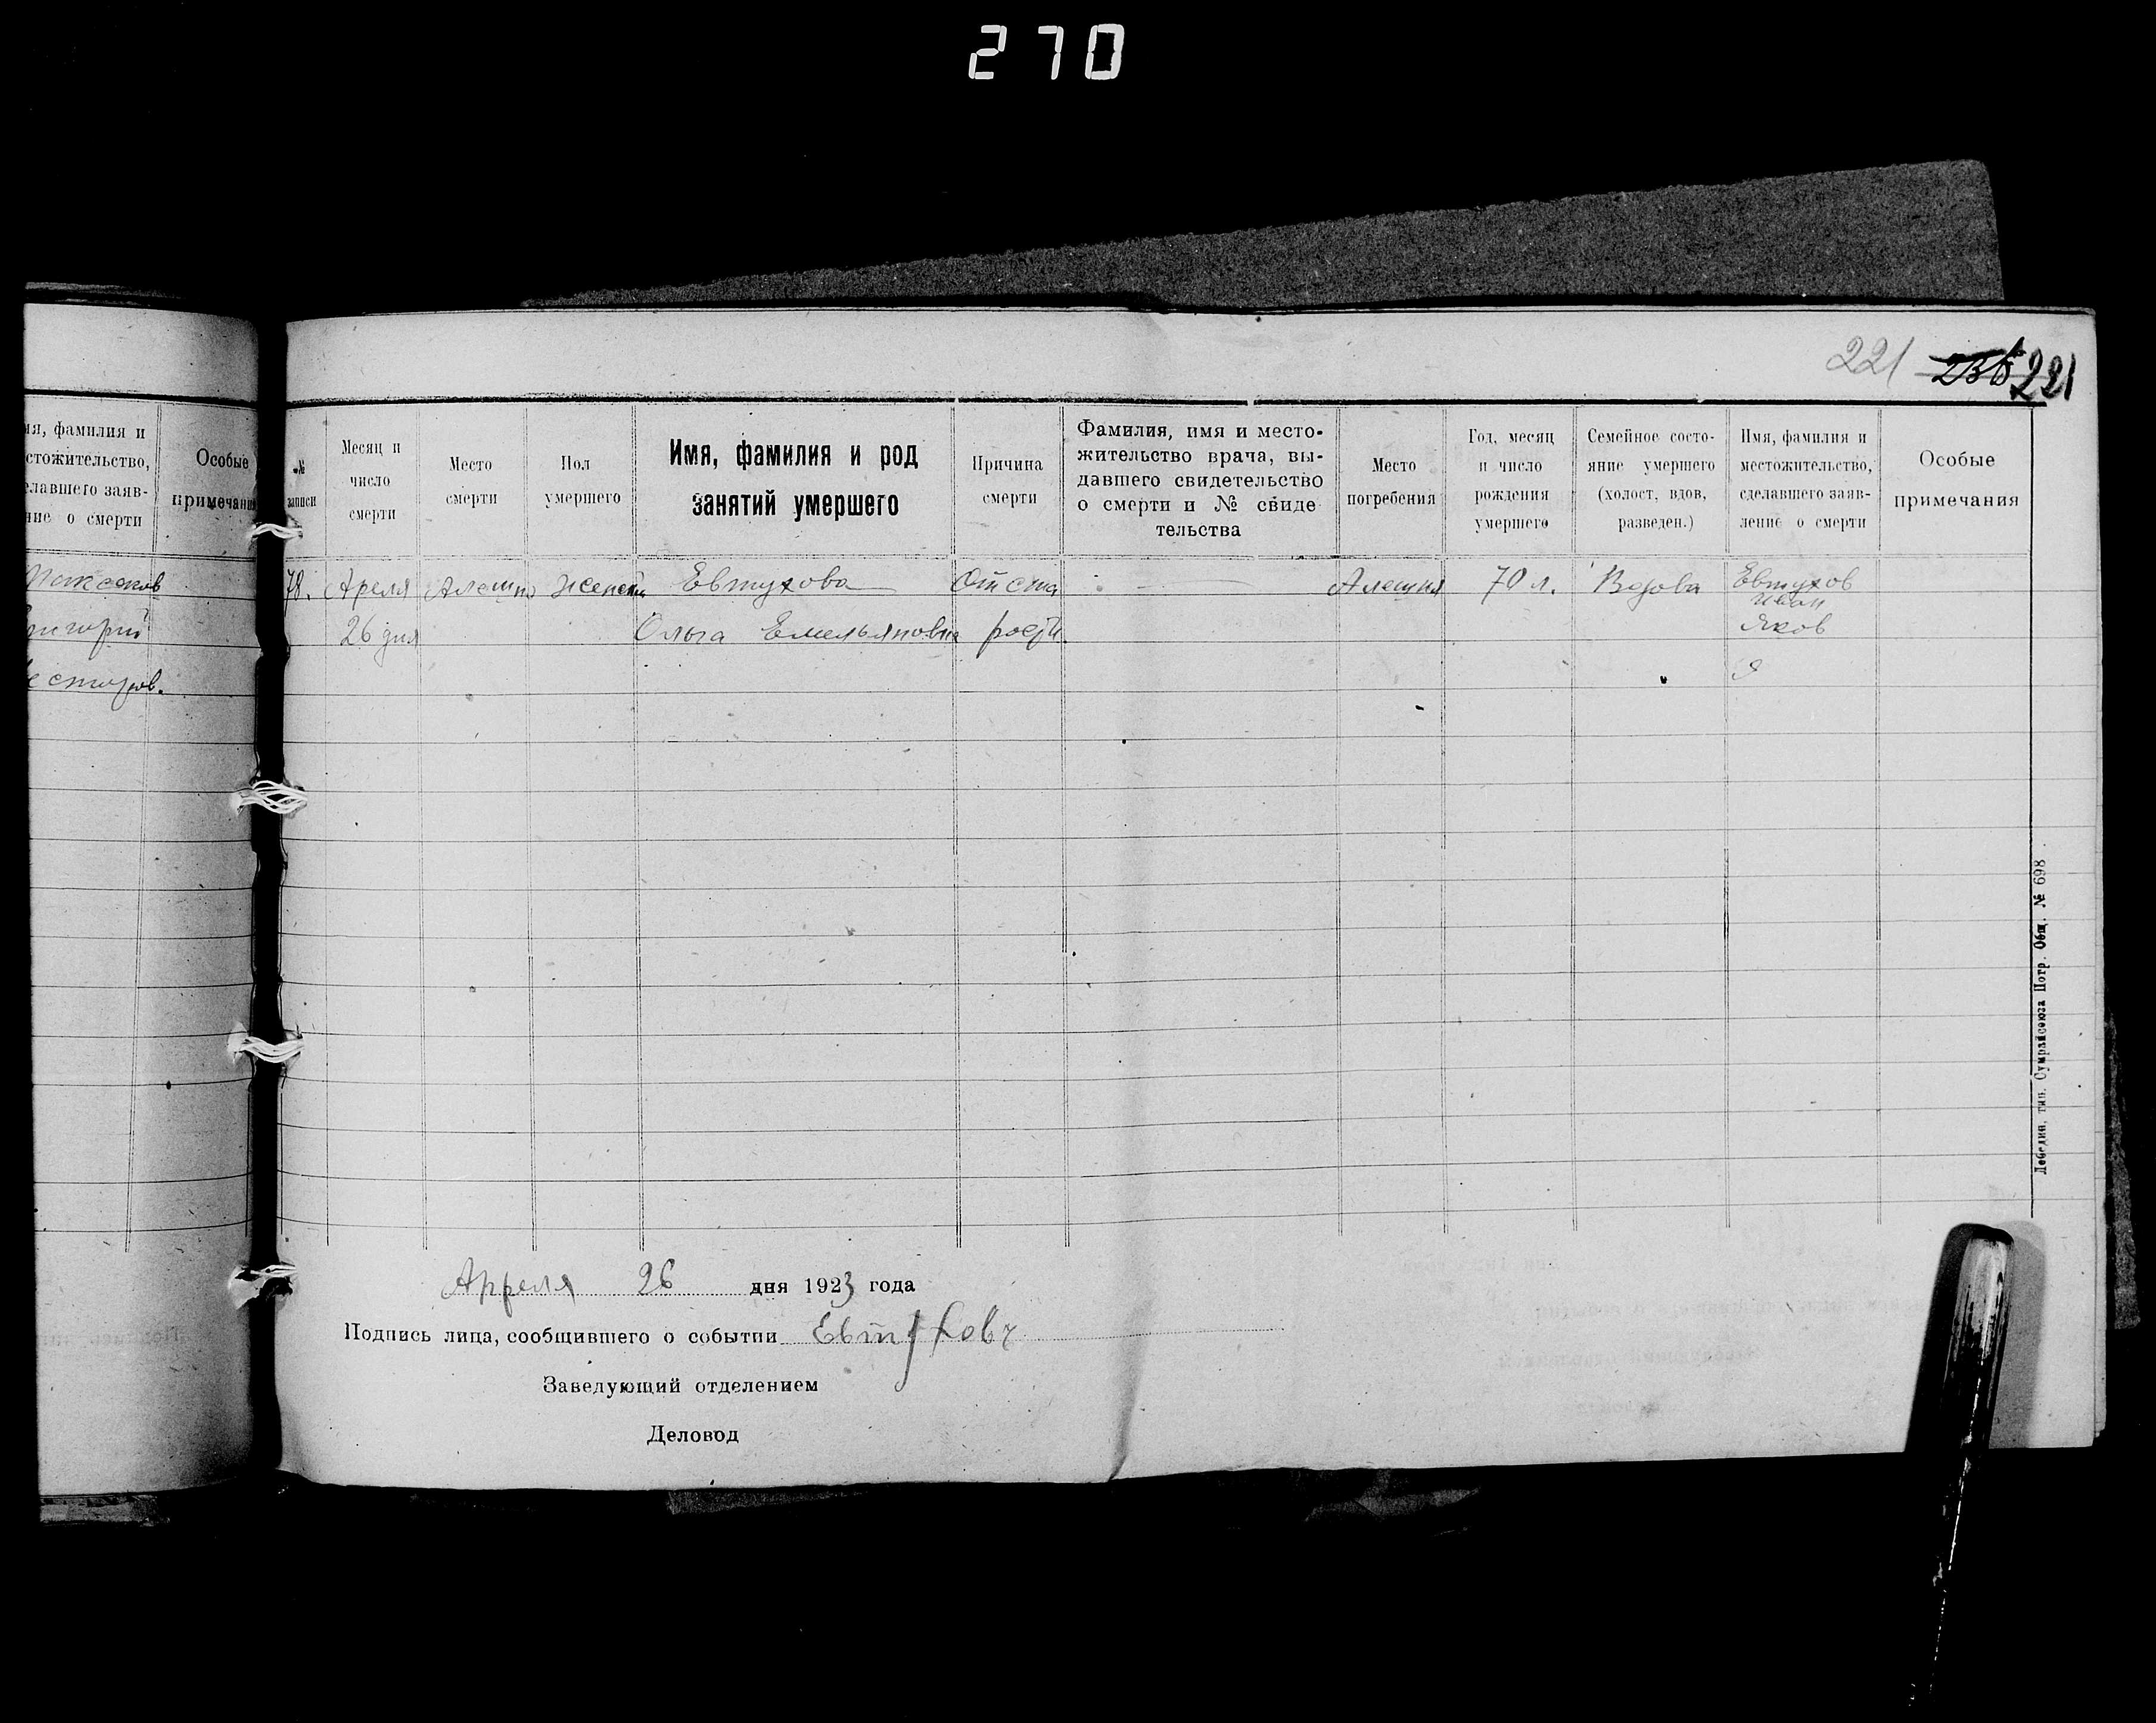 270
221 236 221
мя, фамилия и
стожительство,
елавшего заяв-
ние о смерти
Особые
примечания
Максаков
Григорий
Несторов.
№
записи
Месяц и
число
смерти
Место
смерти
Пол
умершего
Имя, фамилия и род
занятий умершего
Причина
смерти
Фамилия, имя и место-
жительство врача, вы-
давшего свидетельство
о смерти и № свиде
тельства
Место
погребения
Год, месяц
и число
рождения
умершего
Семейное состо-
яние умершего
(холост, вдов,
разведен.)
Имя, фамилия и
местожительство,
сделавшего заяв-
ление о смерти
Особые
примечания
78. Апреля Алешня женски Евтухова От ста — Алешня 70 л. Вдова Евтухов
Иван
26 дня Ольга Емельяновна рости Яков
Я
Апреля 26 дня 1923 года
Подпись лица, сообщившего о событии Евтухов
Заведующий отделением
Деловод
Лебедин, тип. Сумрайсоюза Потр. Общ. № 698.